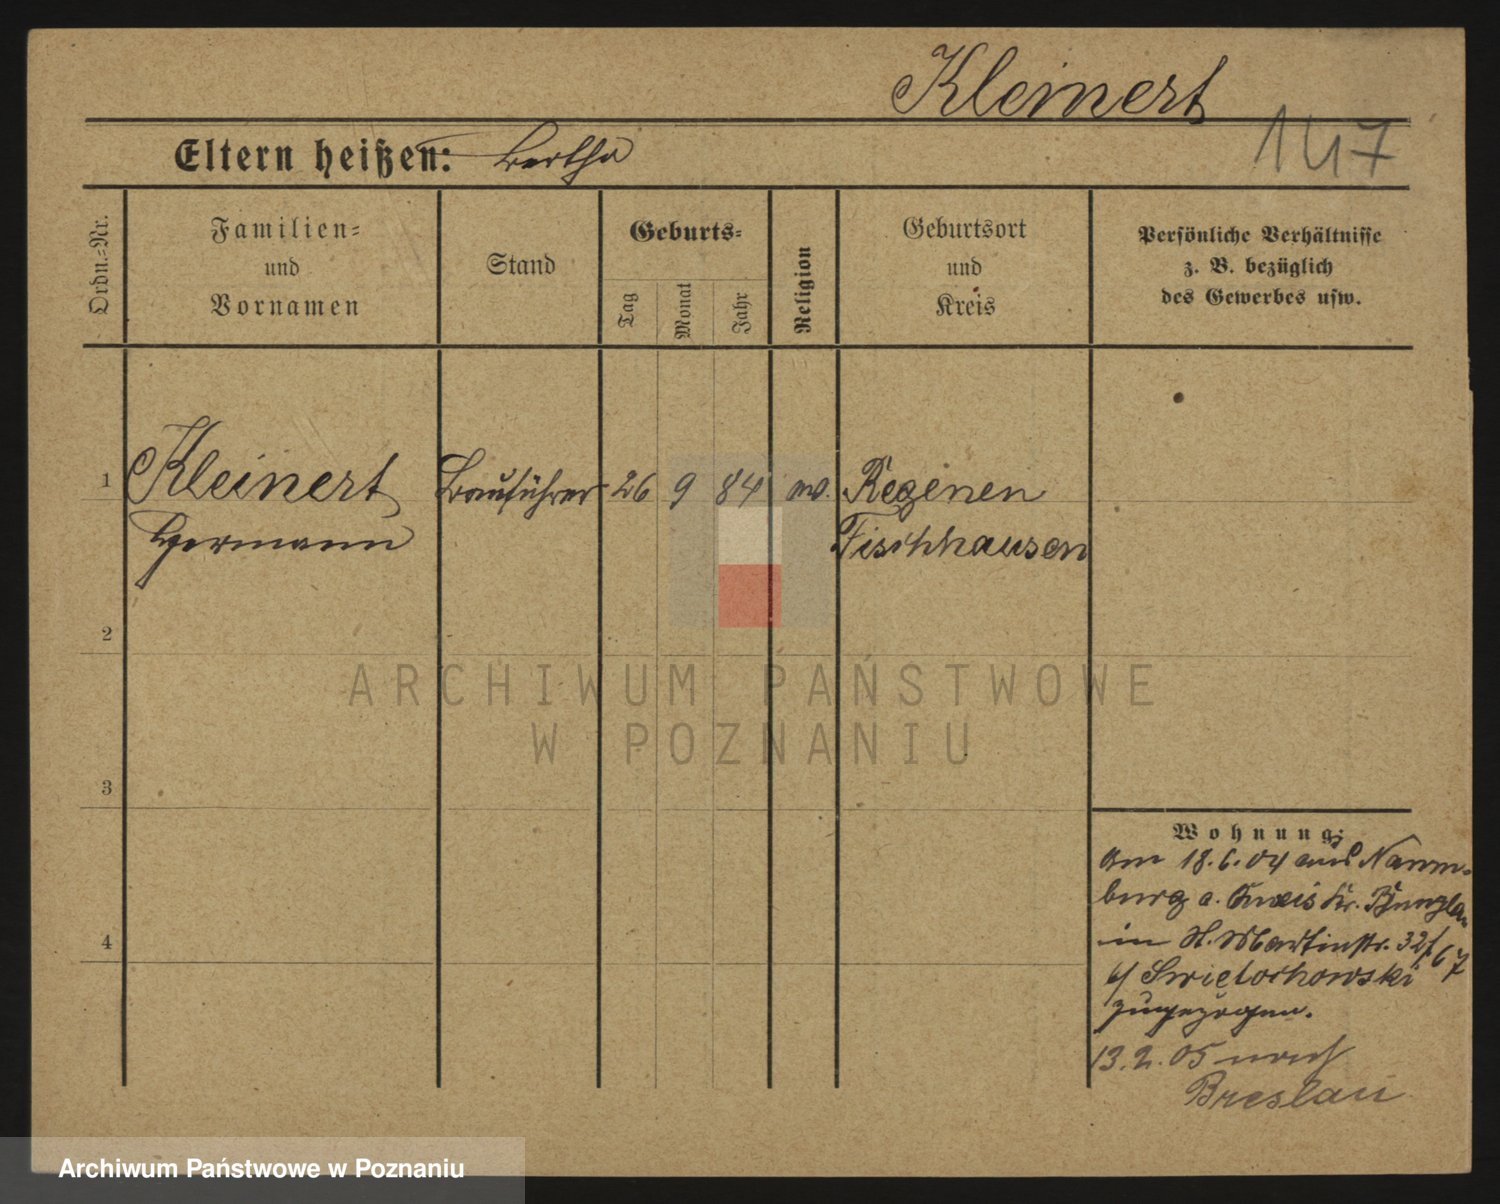 Kleinert
147
Eltern heißen: — Bertha
Ordn.-Nr.
Familien-
und
Vornamen
Stand
Geburts-
Tag
Monat
Jahr
Religion
Geburtsort
und
Kreis
Persönliche Verhältnisse
z. B. bezüglich
des Gewerbes usw.
1
Kleinert
Hermann
Bauführer
26 9 84
ev.
Regenen
Fischhausen
2
3
4
Wohnung:
Am 18.6.04 aus Naum-
burg a. Queis Kr. Bunzlau
in St. Martinstr. 32
b/ Swietochowski
zugezogen.
13.2.05 nach
Breslau
ARCHIWUM PAŃSTWOWE
W POZNANIU
Archiwum Państwowe w Poznaniu